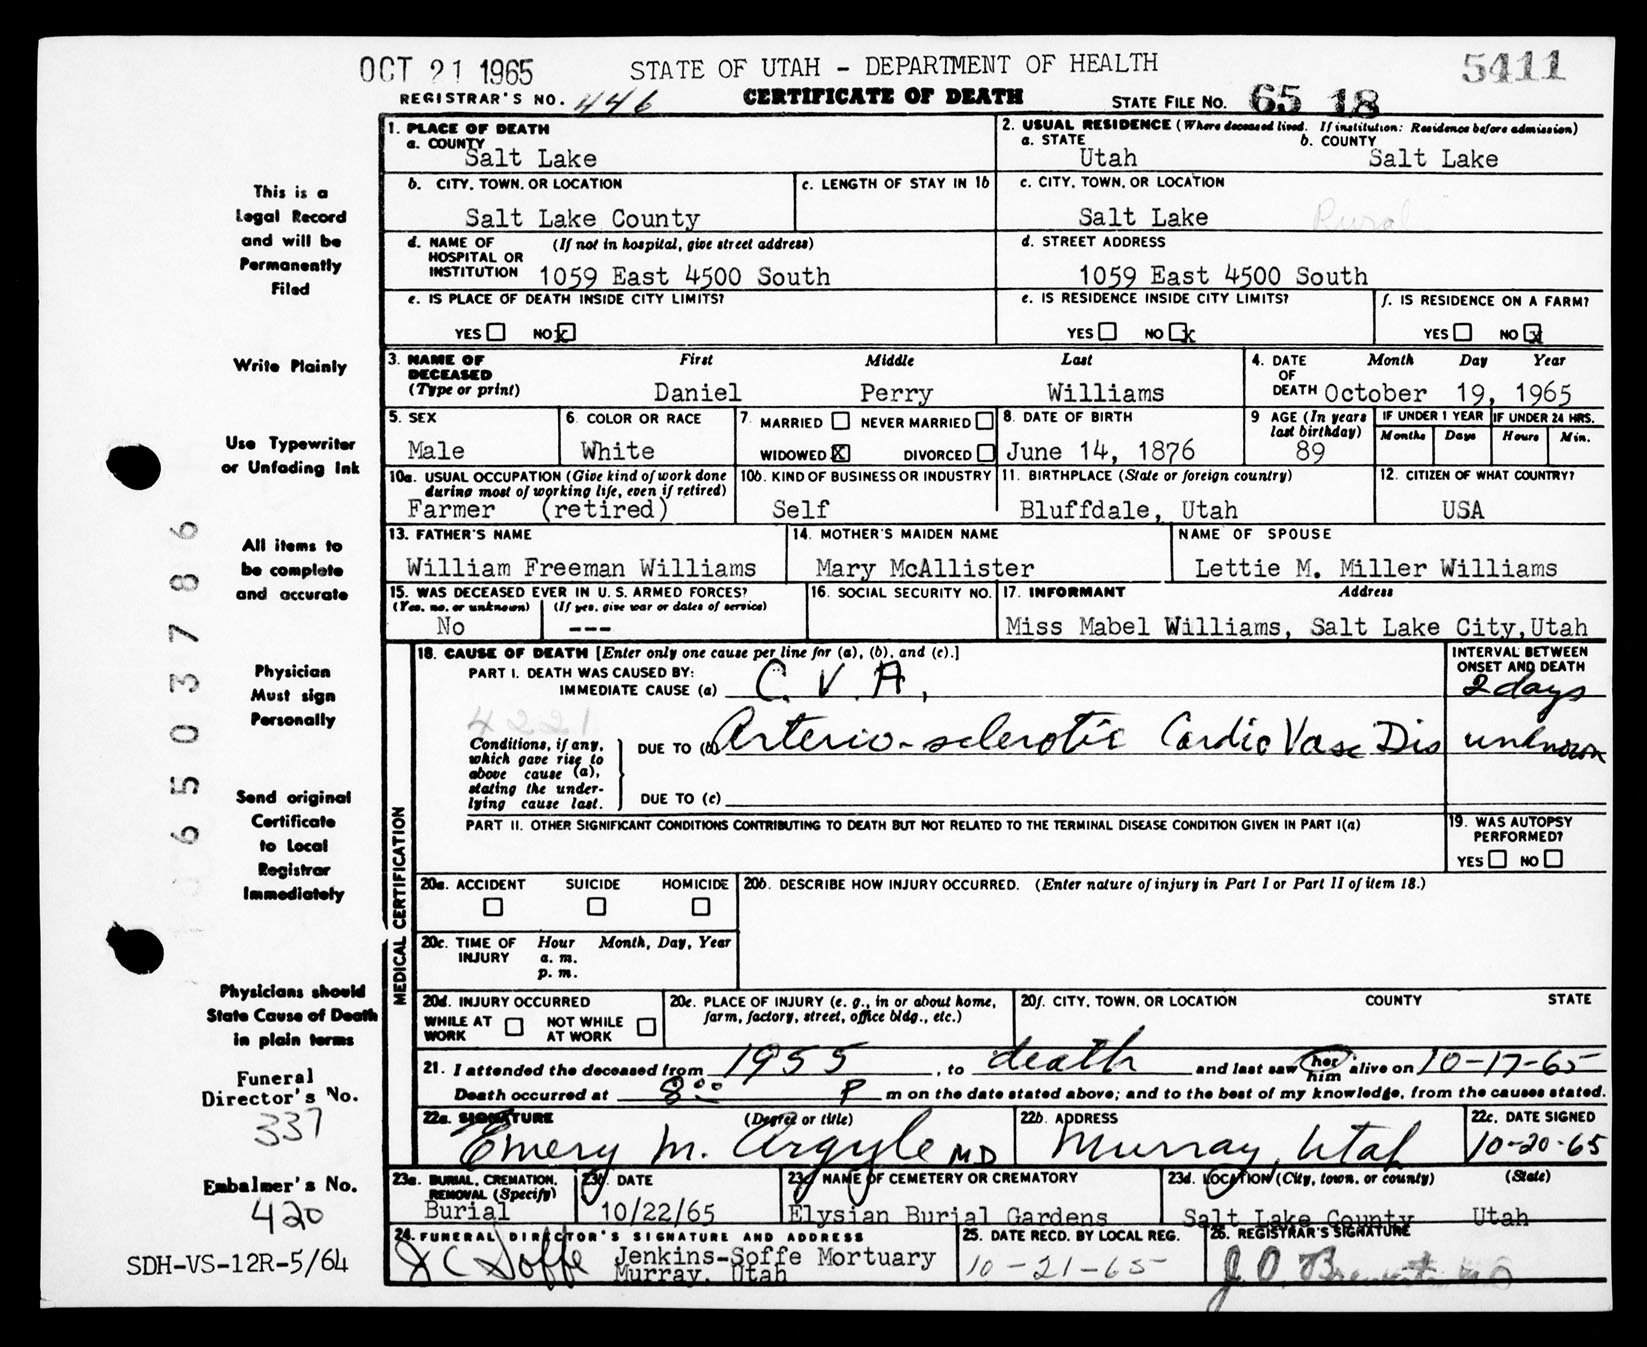 OCT 21 1965
STATE OF UTAH - DEPARTMENT OF HEALTH
5411
REGISTRAR'S NO. 446
CERTIFICATE OF DEATH
STATE FILE NO. 65 18
1. PLACE OF DEATH
a. COUNTY
Salt Lake
2. USUAL RESIDENCE (Where deceased lived. If institution: Residence before admission)
a. STATE b. COUNTY
Utah Salt Lake
b. CITY, TOWN, OR LOCATION
Salt Lake County
c. LENGTH OF STAY IN 1b
c. CITY, TOWN, OR LOCATION
Salt Lake Rural
d. NAME OF HOSPITAL OR INSTITUTION (If not in hospital, give street address)
1059 East 4500 South
d. STREET ADDRESS
1059 East 4500 South
e. IS PLACE OF DEATH INSIDE CITY LIMITS?
YES NO X
e. IS RESIDENCE INSIDE CITY LIMITS?
YES NO X
f. IS RESIDENCE ON A FARM?
YES NO X
3. NAME OF DECEASED (Type or print)
First Middle Last
Daniel Perry Williams
4. DATE OF DEATH Month Day Year
October 19, 1965
5. SEX
Male
6. COLOR OR RACE
White
7. MARRIED NEVER MARRIED
WIDOWED X DIVORCED
8. DATE OF BIRTH
June 14, 1876
9 AGE (In years last birthday)
89
IF UNDER 1 YEAR
Months Days
IF UNDER 24 HRS.
Hours Min.
10a. USUAL OCCUPATION (Give kind of work done during most of working life, even if retired)
Farmer (retired)
10b. KIND OF BUSINESS OR INDUSTRY
Self
11. BIRTHPLACE (State or foreign country)
Bluffdale, Utah
12. CITIZEN OF WHAT COUNTRY?
USA
13. FATHER'S NAME
William Freeman Williams
14. MOTHER'S MAIDEN NAME
Mary McAllister
NAME OF SPOUSE
Lettie M. Miller Williams
15. WAS DECEASED EVER IN U. S. ARMED FORCES?
(Yes, no, or unknown) (If yes, give war or dates of service)
No ---
16. SOCIAL SECURITY NO.
17. INFORMANT Address
Miss Mabel Williams, Salt Lake City, Utah
MEDICAL CERTIFICATION
18. CAUSE OF DEATH [Enter only one cause per line for (a), (b), and (c).]
INTERVAL BETWEEN ONSET AND DEATH
PART I. DEATH WAS CAUSED BY:
IMMEDIATE CAUSE (a) C. V. A, 2 days
4221
Conditions, if any, which gave rise to above cause (a), stating the under-lying cause last.
DUE TO (b) Arterio-sclerotic Cardio Vasc Dis unknown
DUE TO (c)
PART II. OTHER SIGNIFICANT CONDITIONS CONTRIBUTING TO DEATH BUT NOT RELATED TO THE TERMINAL DISEASE CONDITION GIVEN IN PART I(a)
19. WAS AUTOPSY PERFORMED?
YES NO
20a. ACCIDENT SUICIDE HOMICIDE
20b. DESCRIBE HOW INJURY OCCURRED. (Enter nature of injury in Part I or Part II of item 18.)
20c. TIME OF INJURY Hour Month, Day, Year
a. m.
p. m.
20d. INJURY OCCURRED
WHILE AT WORK NOT WHILE AT WORK
20e. PLACE OF INJURY (e. g., in or about home, farm, factory, street, office bldg., etc.)
20f. CITY, TOWN, OR LOCATION COUNTY STATE
21. I attended the deceased from 1955, to death and last saw her him alive on 10-17-65
Death occurred at 8 00 P m on the date stated above; and to the best of my knowledge, from the causes stated.
22a. SIGNATURE (Degree or title)
Emery M. Argyle MD
22b. ADDRESS
Murray, Utah
22c. DATE SIGNED
10-20-65
23a. BURIAL, CREMATION, REMOVAL (Specify)
Burial
23b. DATE
10/22/65
23c NAME OF CEMETERY OR CREMATORY
Elysian Burial Gardens
23d. LOCATION (City, town, or county) (State)
Salt Lake County Utah
24. FUNERAL DIRECTOR'S SIGNATURE AND ADDRESS
J C Soffe Jenkins-Soffe Mortuary
Murray, Utah
25. DATE RECD. BY LOCAL REG.
10-21-65
26. REGISTRAR'S SIGNATURE
J. O.
This is a
Legal Record
and will be
Permanently
Filed
Write Plainly
Use Typewriter
or Unfading Ink
All items to
be complete
and accurate
Physician
Must sign
Personally
Send original
Certificate
to Local
Registrar
Immediately
Physicians should
State Cause of Death
in plain terms
Funeral
Director's No.
337
Embalmer's No.
420
SDH-VS-12R-5/64
36503786